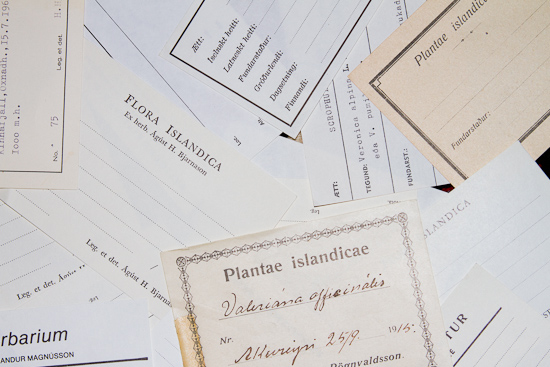 Kirkhijall, Öxnadh., 15.7.196
1000 m.h.
No. 75
Leg. et det. H.H
Ætt:
Íslenskt heiti:
Latneskt heiti:
Fundarstaður:
Gróðurlendi:
Dagsetning:
Finnandi:
Leg.
SCROPHUL
Veronica alpina
eða V. pumi
ÆTT:
TEGUND:
FUNDARST:
Plantae islandicae
Fundarstaður:
FLORA ISLANDICA
Ex herb. Ágúst H. Bjarnason
Leg. et det. Ágúst H. Bjarn
Leg. et det.
ISLANDICA
rbarium
ANDUR MAGNÚSSON
Plantae islandicae
Valeriana officinalis
Nr.
Akureyri 25/9. 1915.
Rögnvaldsson.
TUR